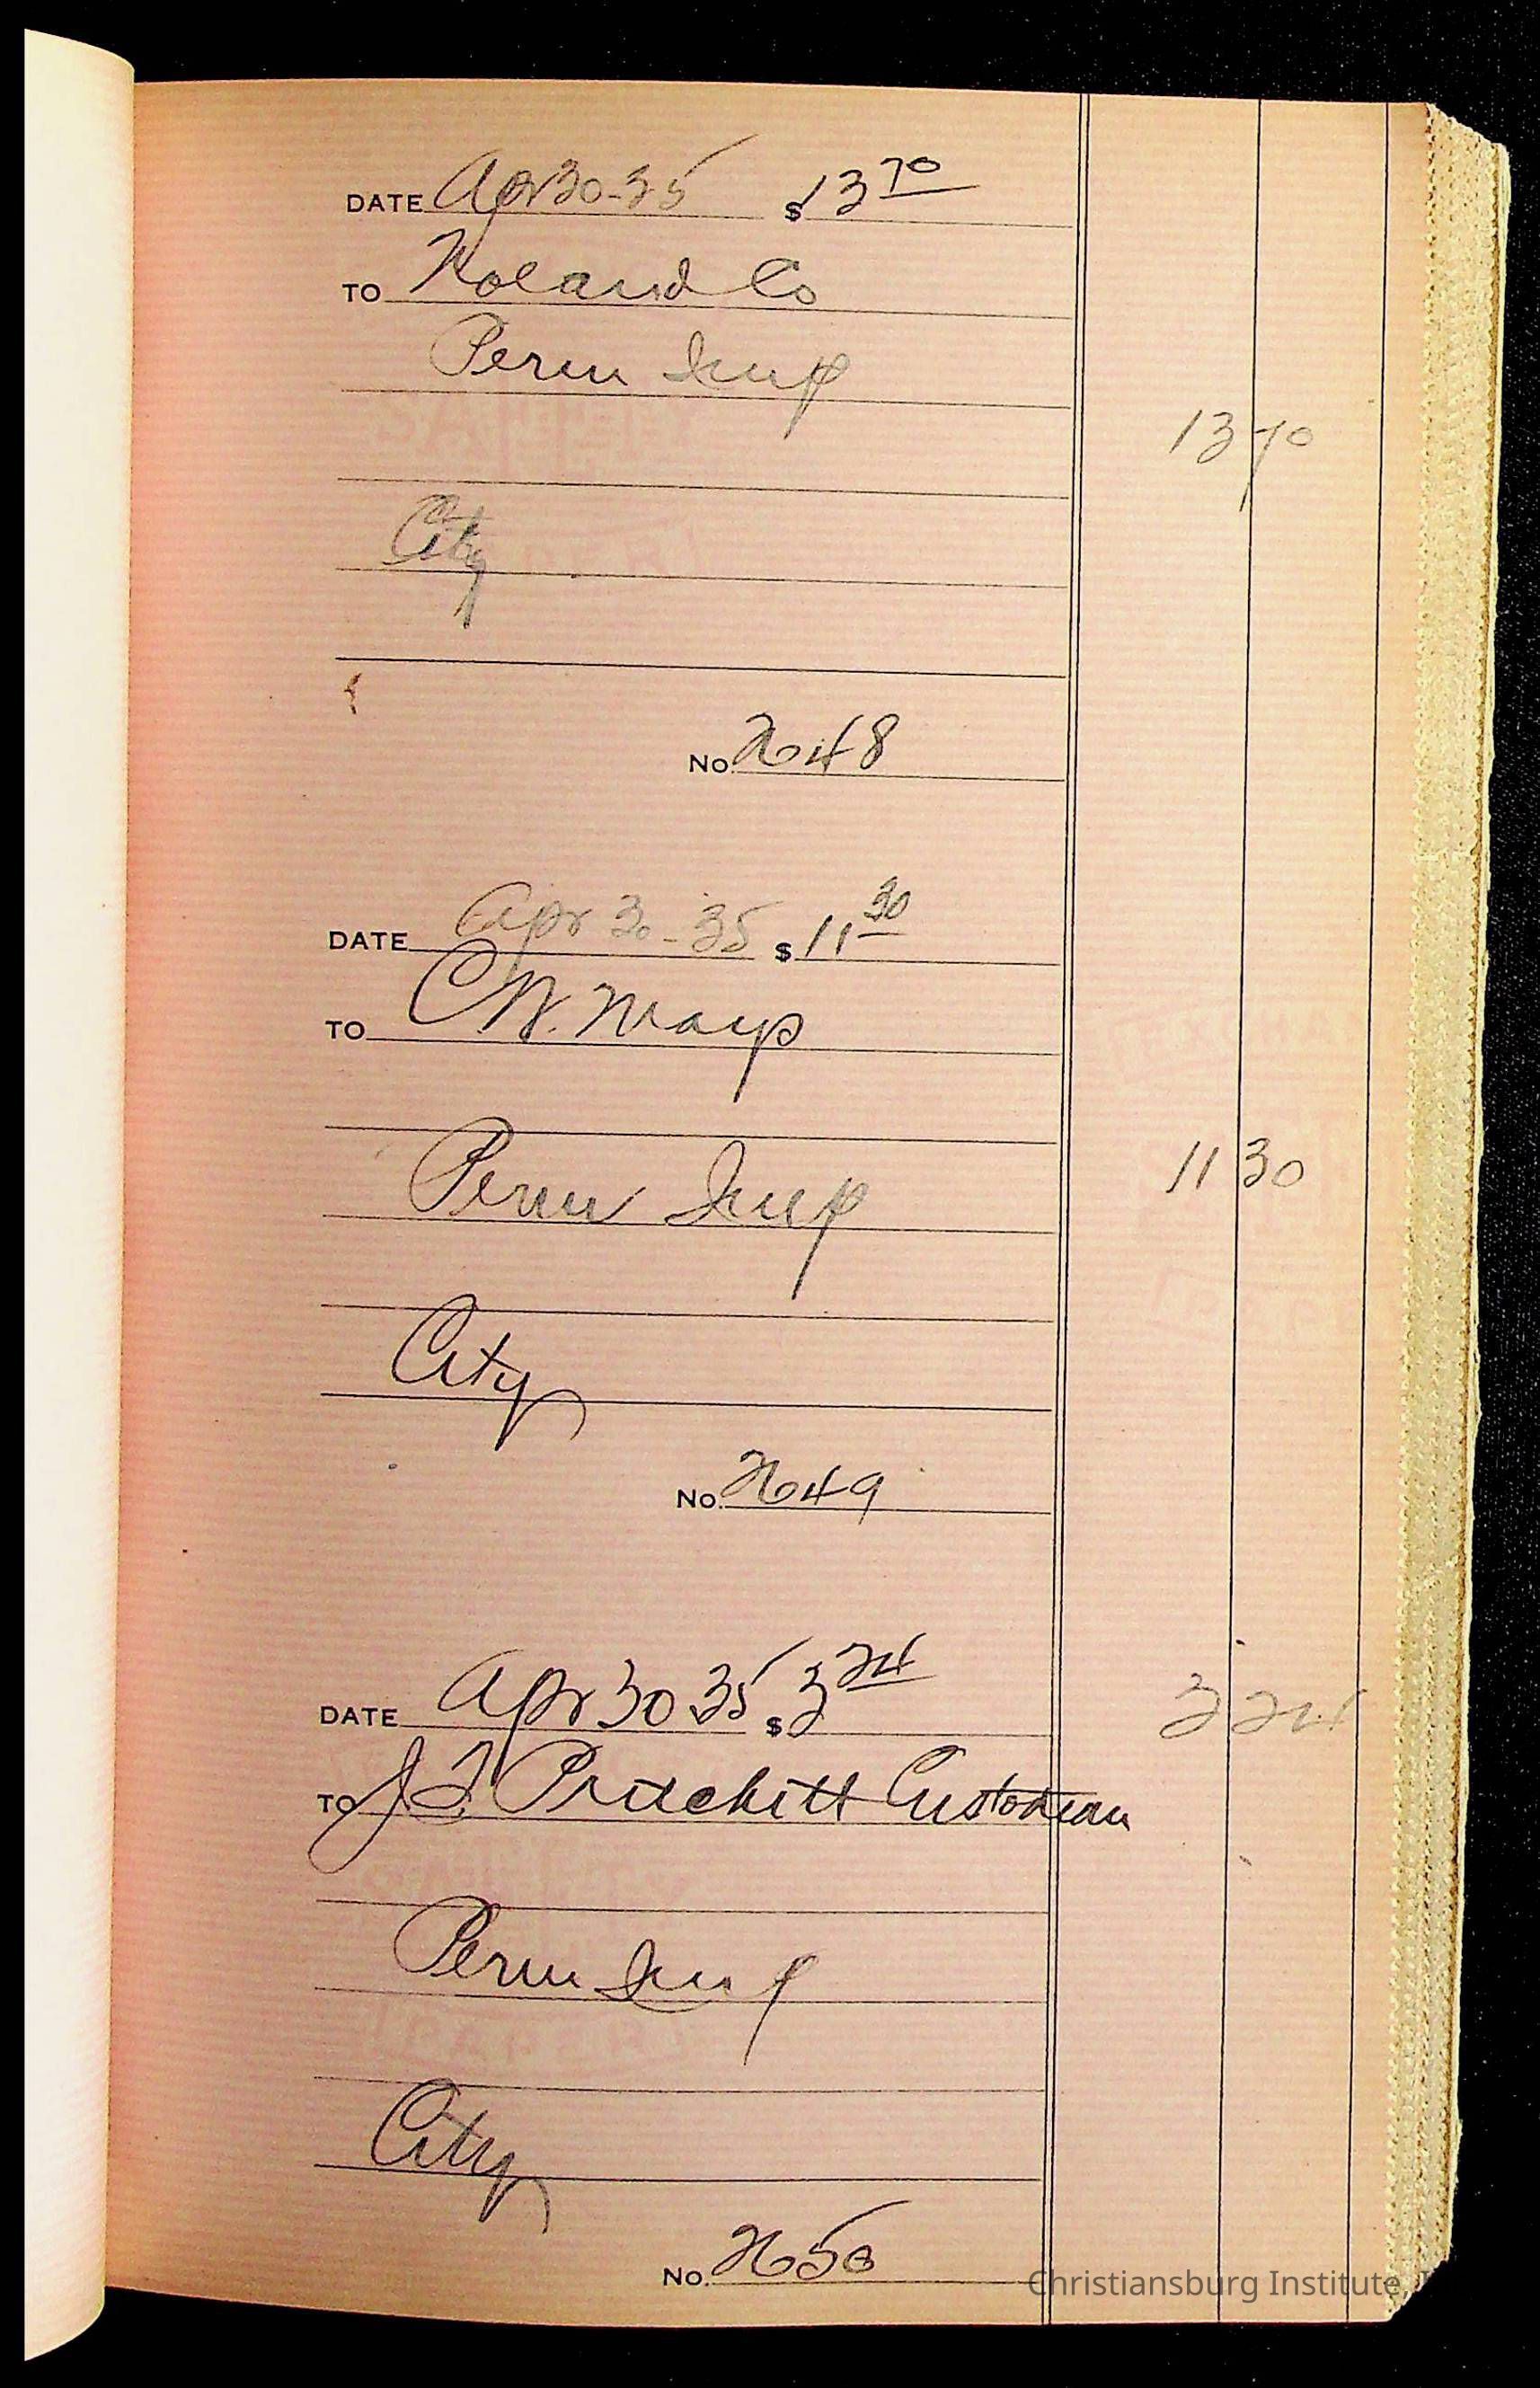 DATE Apr 30-35 $13 70
TO Roland Co
Perm Imp
13 70
City
No. 2648
DATE Apr 30-35 $11 30
TO C.W. Mays
Perm Imp
11 30
City
No. 2649
DATE Apr 30 35 $3 24
3 24
TO J Pritchett Custodian
Perm Imp
City
No. 2650
Christiansburg Institute,